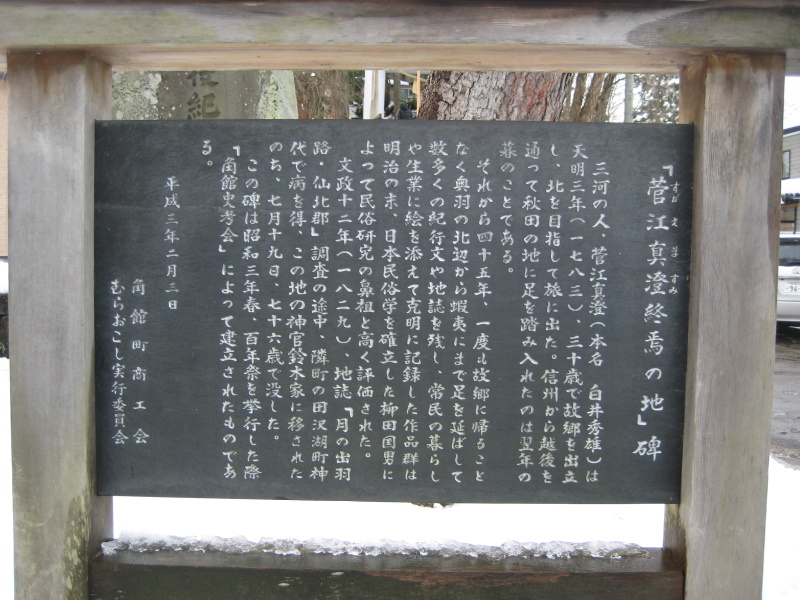 「菅江真澄終焉の地」碑
すがえますみ
三河の人、菅江真澄(本名 白井秀雄)は
天明三年(一七八三)、三十歳で故郷を出立
し、北を目指して旅に出た。信州から越後を
通って秋田の地に足を踏み入れたのは翌年の
暮のことである。
それから四十五年、一度も故郷に帰ること
なく奥羽の北辺から蝦夷にまで足を延ばして
数多くの紀行文や地誌を残し、常民の暮らし
や生業に絵を添えて克明に記録した作品群は
明治の末、日本民俗学を確立した柳田国男に
よって民俗研究の鼻祖と高く評価された。
文政十二年(一八二九)、地誌「月の出羽
路・仙北郡」調査の途中、隣町の田沢湖町神
代で病を得、この地の神官鈴木家に移された
のち、七月十九日、七十六歳で没した。
この碑は昭和三年春、百年祭を挙行した際
「角館史考会」によって建立されたものであ
る。
平成三年二月三日
角館町商工会
むらおこし実行委員会
紀